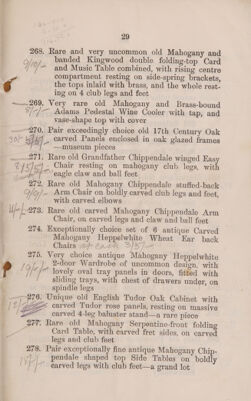 29
268. Rare and very uncommon old Mahogany and
banded Kingwood double folding-top Card
and Music Table combined, with rising centre
compartment resting on side-spring brackets,
the tops inlaid with brass, and the whole rest-
ing on 4 club legs and feet
269. Very rare old Mahogany and Brass-bound
Adams Pedestal Wine Cooler with tap, and
vase-shape top with cover
270. Pair exceedingly choice old 17th Century Oak
carved Panels enclosed in oak glazed frames
—museum pieces
271. Rare old Grandfather Chippendale winged Easy
Chair resting on mahogany club legs, with
eagle claw and ball feet
272. Rare old Mahogany Chippendale stuffed-back
Arm Chair on boldly carved club legs and feet,
with carved elbows
273. Rare old carved Mahogany Chippendale Arm
Chair, on carved legs and claw and ball feet
274. Exceptionally choice set of 6 antique Carved
Mahogany Hepplewhite Wheat Ear back
Chairs
275. Very choice antique Mahogany Hepplewhite
2-door Wardrobe of uncommon design, with
lovely oval tray panels in doors, fitted with
sliding trays, with chest of drawers under, on
spindle legs
276. Unique old English Tudor Oak Cabinet with
carved Tudor rose panels, resting on massive
carved 4-leg baluster stand—a rare piece
277. Rare old Mahogany Serpentine-front folding
Card Table, with carved fret sides, on carved
legs and club feet
278. Pair exceptionally fine antique Mahogany Chip-
pendale shaped top Side Tables on boldly
carved legs with club feet—a grand lot